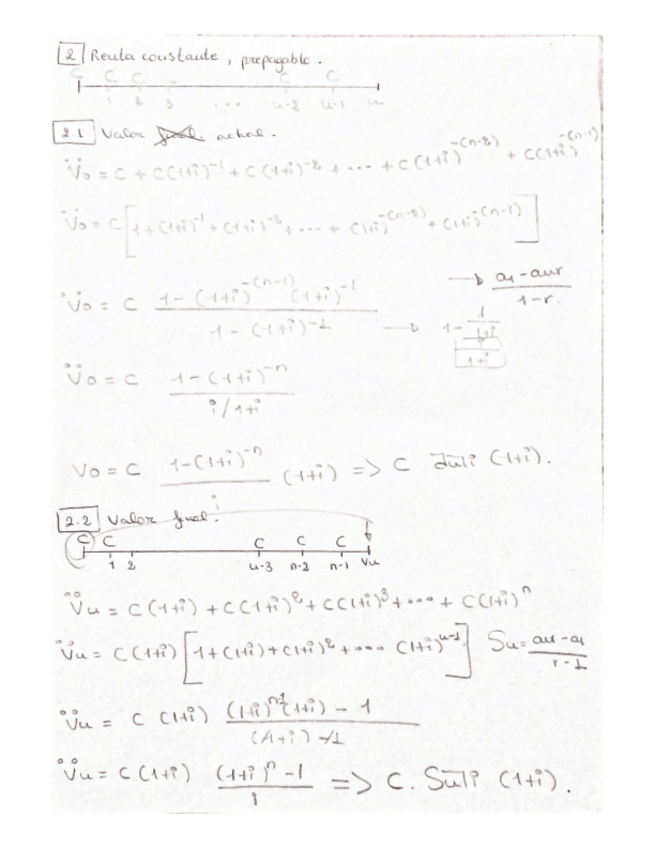 2 Renta constante, prepagable.
C C C C C
1 2 3 ... n-2 n-1 n
2.1 Valor final actual.
V̈o = C + C(1+i)^-1 + C(1+i)^-2 + ... + C(1+i)^-(n-2) + C(1+i)^-(n-1)
V̈o = C [1 + (1+i)^-1 + (1+i)^-2 + ... + (1+i)^-(n-2) + (1+i)^-(n-1)]
→ a1-anr / 1-r.
V̈o = C 1-(1+i)^-(n-1) (1+i)^-1 / 1-(1+i)^-1 → 1 - 1/1+i
i/1+i
V̈o = C 1-(1+i)^-n / i/1+i
Vo = C 1-(1+i)^-n / i (1+i) => C an̄|i (1+i).
2.2 Valor final.
C C C C C
1 2 n-3 n-2 n-1 Vn
V̈n = C(1+i) + C(1+i)^2 + C(1+i)^3 + ... + C(1+i)^n
V̈n = C(1+i) [1+(1+i)+(1+i)^2+... (1+i)^n-1] Sn = anr-a1 / r-1
V̈n = C (1+i) (1+i)^n-1 (1+i) - 1 / (1+i) -1
V̈n = C(1+i) (1+i)^n -1 / i => C. Sn̄|i (1+i).